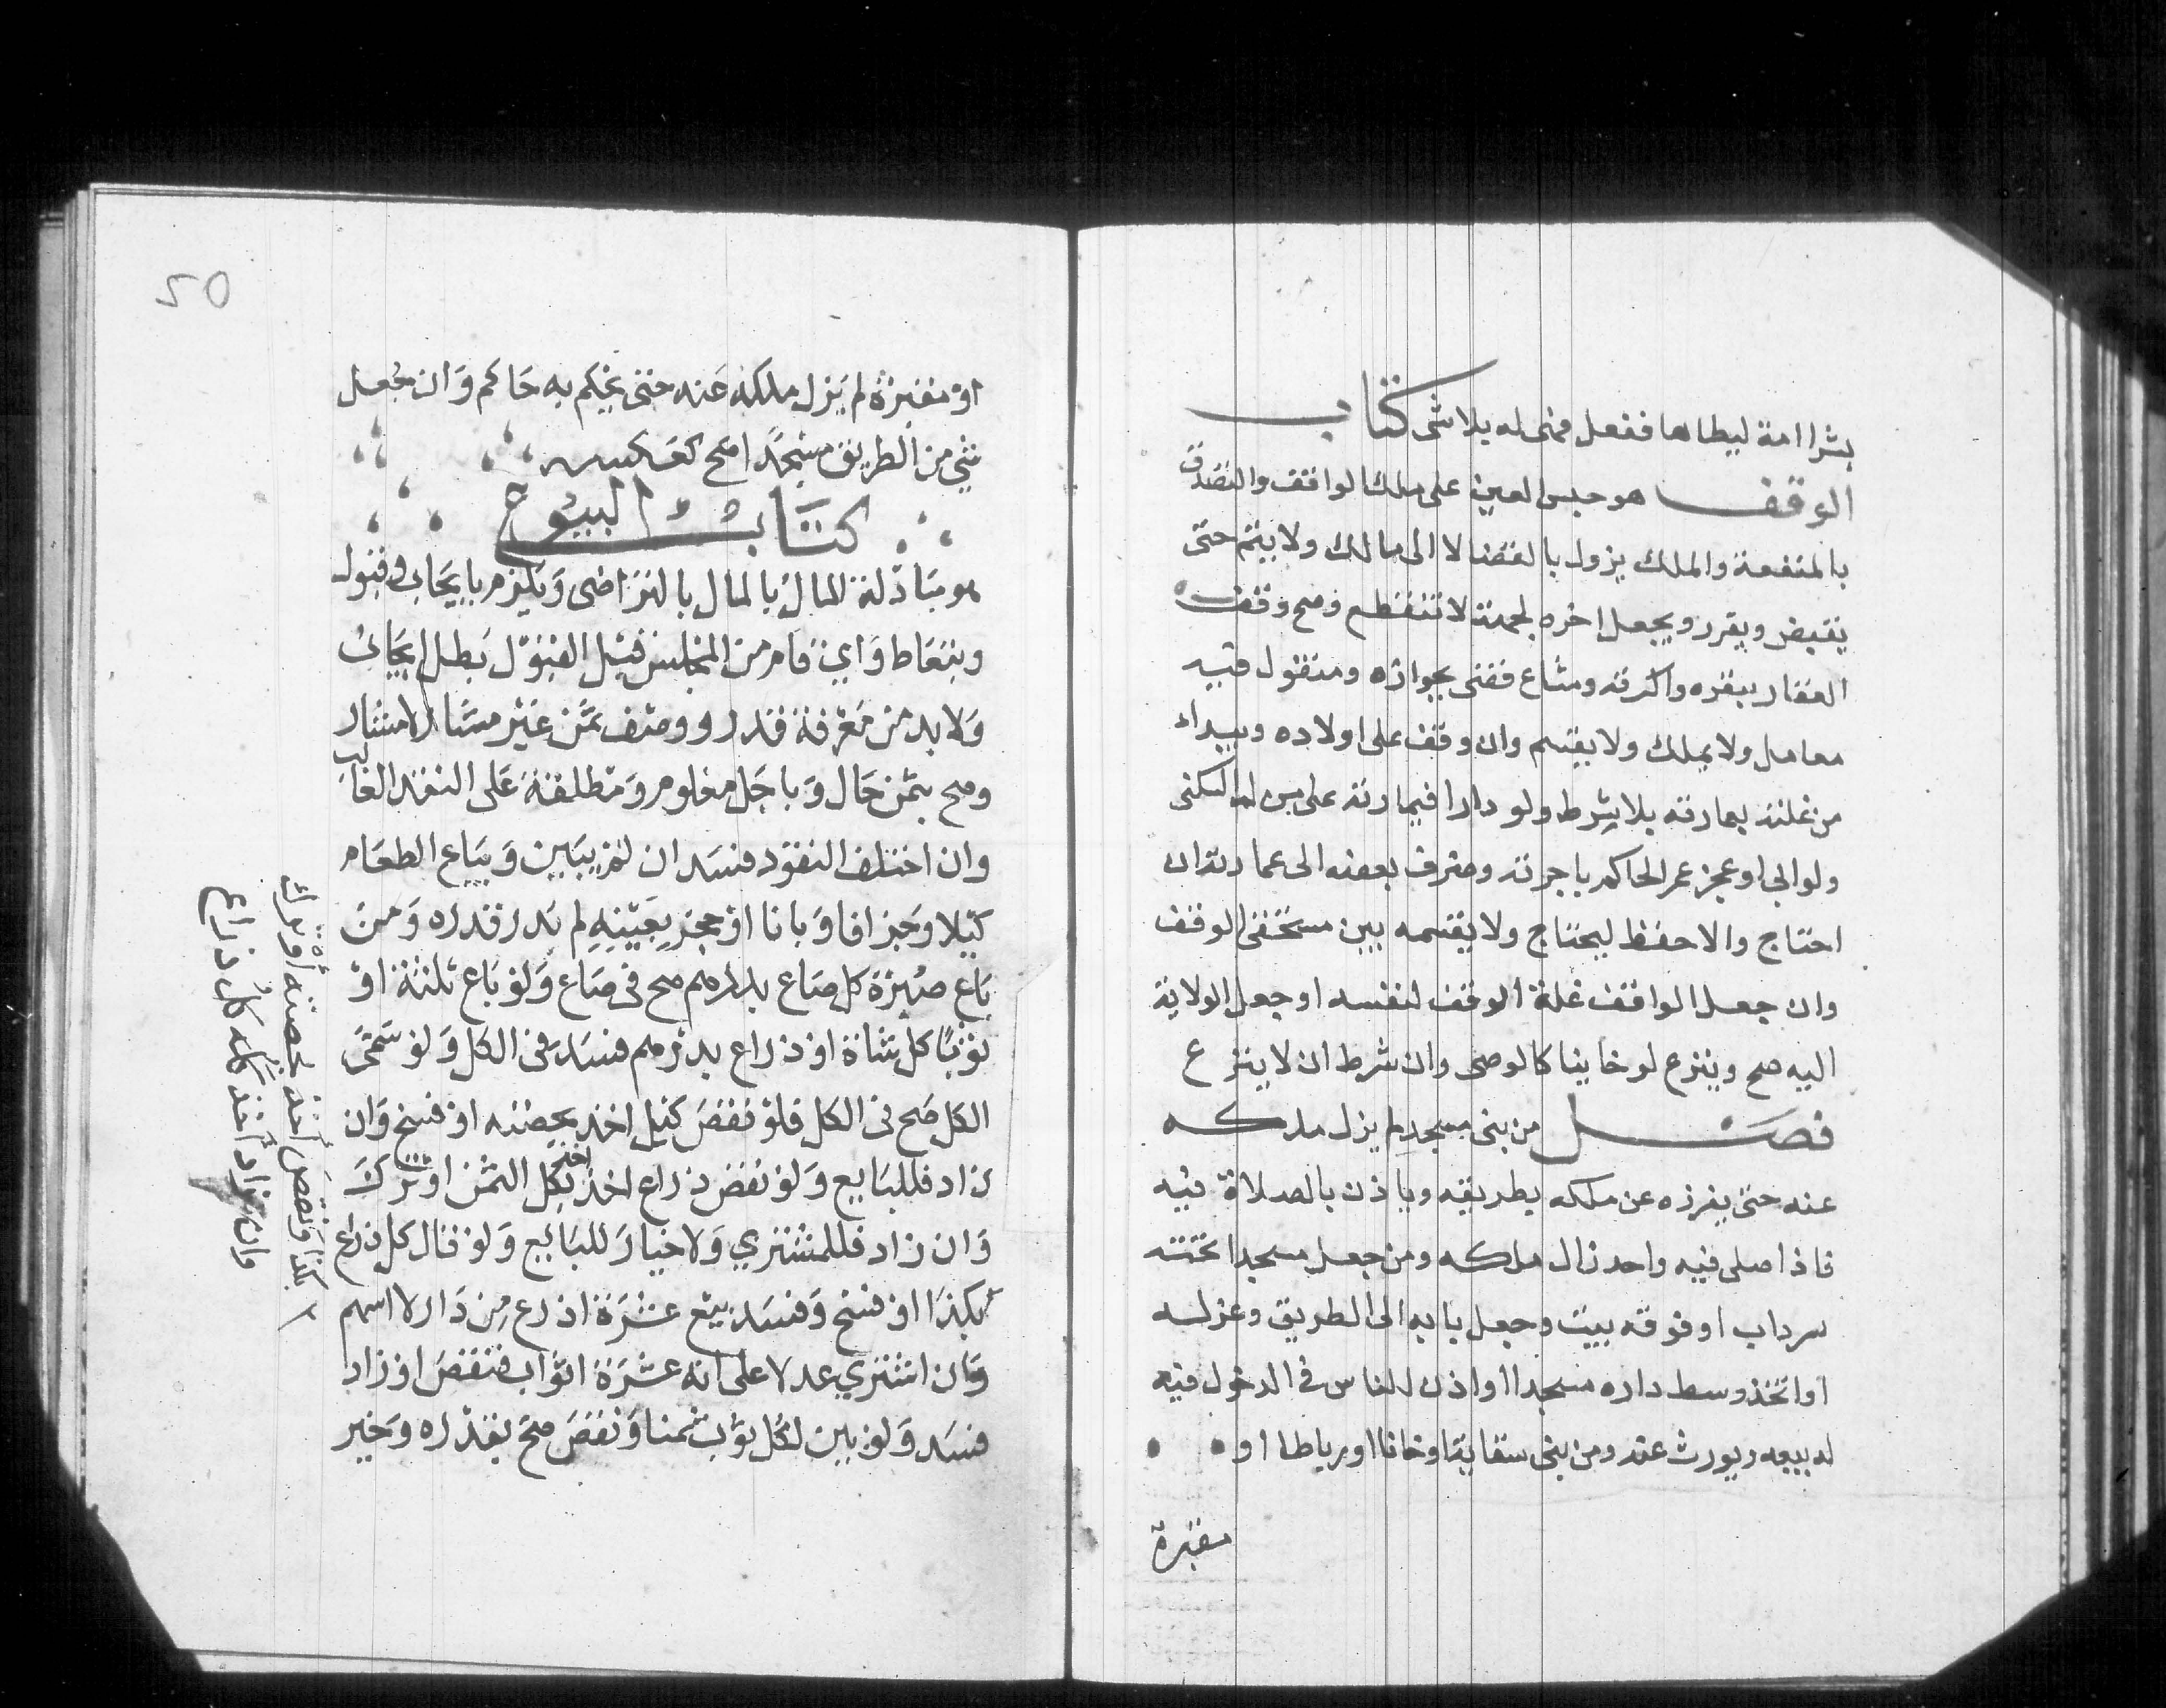 بشرا امة ليطاها ففعل فهى له بلا شى كتاب
الوقف هو حبس العين على ملك الواقف والتصدق
بالمنفعة والملك يزول بالقضا لا الى مالك ولا يتم حتى
يقبض ويفرز ويجعل اخره لجهة لا تنقطع وصح وقف
العقار ببقره واكرته ومشاع قضى بجوازه ومنقول فيه
معامل ولا يملك ولا يقسم وان وقف على اولاده ويبداء
من غلته بعمارته بلا شرط ولو دارا فعمارته على من له السكنى
ولو ابى او عجز عمر الحاكم باجرته وصرف بعضه الى عمارته ان
احتاج والا حفظ ليحتاج ولا يقسمه بين مستحقى الوقف
وان جعل الواقف غلة الوقف لنفسه او جعل الولاية
اليه صح وينزع لو خاينا كالوصى وان شرط ان لا ينزع
فصل من بنى مسجدا لم يزل ملكه
عنه حتى يفرزه عن ملكه بطريقه وياذن بالصلاة فيه
فاذا صلى فيه واحد زال ملكه ومن جعل مسجدا تحته
سرداب او فوقه بيت وجعل بابه الى الطريق وعزله
او اتخذ وسط داره مسجدا واذن للناس فى الدخول فيه
له بيعه ويورث عنه ومن بنى سقاية او خانا او رباطا او
مقبرة
50
او مقبرة لم يزل ملكه عنه حتى يحكم به حاكم وان جعل
شي من الطريق مسجدا صح كعكسه
كتاب البيوع
هو مبادلة المال بالمال بالتراضى ويلزم بايجاب وقبول
وبتعاط واي قام من المجلس قبل القبول بطل الايجاب
ولا بد من معرفة قدر ووصف ثمن غير مشار لا مشار
وصح بثمن حال وباجل معلوم ومطلقه على النقد الغالب
وان اختلف النقود فسد ان لم يبين ويباع الطعام
كيلا وجزافا وبانا او حجر بعينه لم يدر قدره ومن
باع صبرة كل صاع بدرهم صح فى صاع ولو باع ثلثة او
ثوبا كل شاة او ذراع بدرهم فسد فى الكل ولو سمى
الكل صح فى الكل فلو نقص كيل اخذ بحصته او فسخ وان
زاد فللبايع ولو نقص ذراع اخذ بكل الثمن او ترك
وان زاد فللمشتري ولا خيار للبايع ولو قال كل ذراع
بكذا او فسخ وفسد بيع عشرة اذرع من دار لا اسهم
وان اشتري عدلا على انه عشرة اثواب فنقص او زاد
فسد ولو بين لكل ثوب ثمنا ونقص صح بقدره وخير
بكذا ونقص اخذ بحصته او ترك
وان زاد اخذ كله كل ذراع